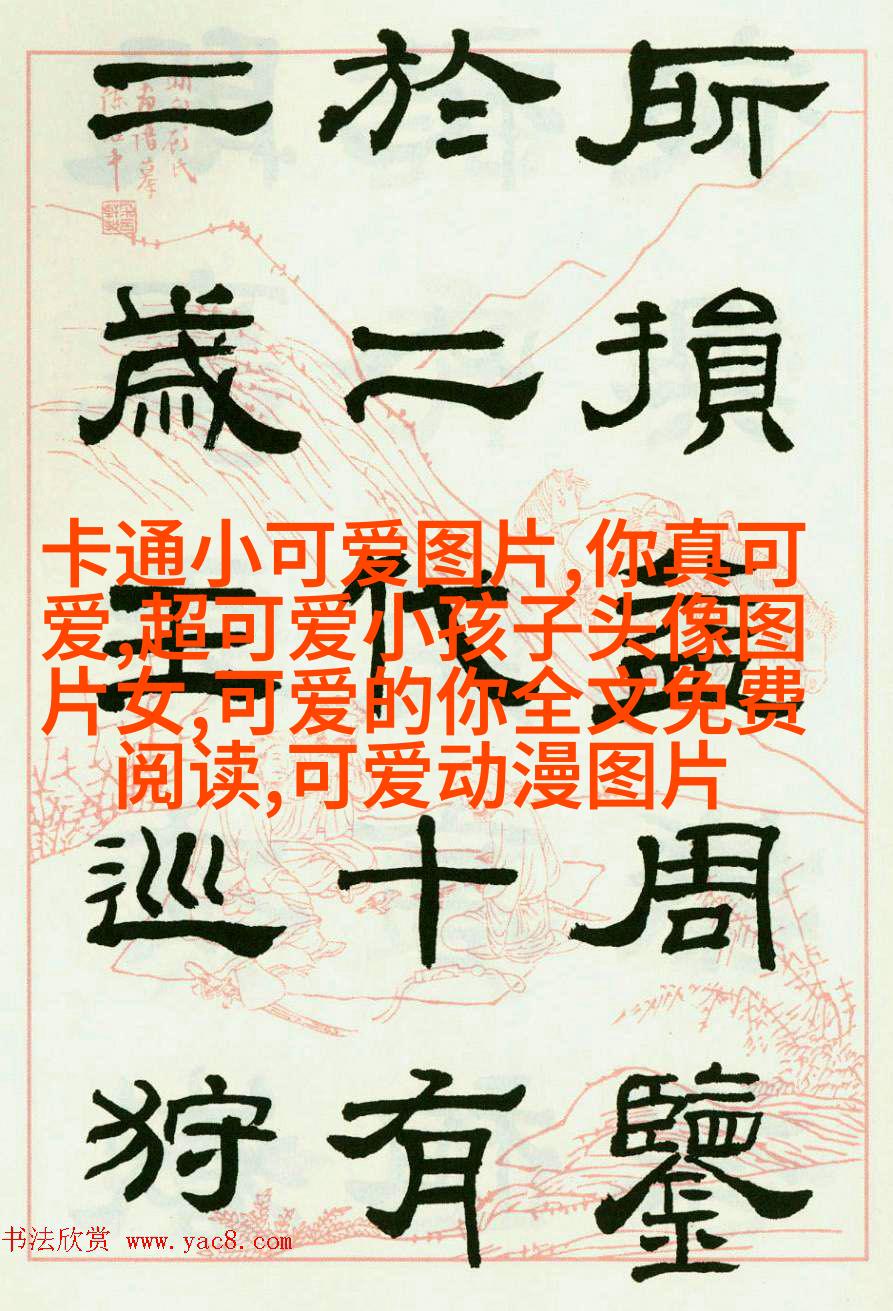 所損益周鑒
於二代十有
二歲王巡狩
卡通小可爱图片,你真可
爱,超可爱小孩子头像图
片女,可爱的你全文免费
阅读,可爱动漫图片
书法欣赏 www.yac8.com